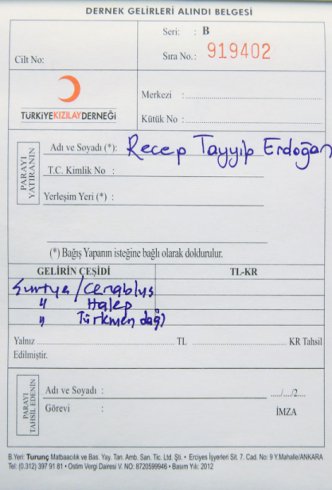 DERNEK GELİRLERİ ALINDI BELGESİ
Seri: B
Cilt No:
Sıra No.: 919402
TÜRKİYE KIZILAY DERNEĞİ
Merkezi :
Kütük No :
PARAYI YATIRANIN
Adı ve Soyadı (*): Recep Tayyip Erdoğan
T.C. Kimlik No :
Yerleşim Yeri (*) :
(*) Bağış Yapanın isteğine bağlı olarak doldurulur.
GELİRİN ÇEŞİDİ TL-KR
Suriye/Cerablus
" Halep
" Türkmen dağı
Yalnız TL KR Tahsil
Edilmiştir.
PARAYI TAHSİL EDENİN
Adı ve Soyadı : ..../..../2....
Görevi : İMZA
B.Yeri: Turunç Matbaacılık ve Bas. Yay. Tan. Amb. San. Tic. Ltd. Şti. • Erciyes İşyerleri Sit. 7. Cad. No: 9 Y.Mahalle/ANKARA
Tel: (0.312) 397 91 81 • Ostim Vergi Dairesi V. NO: 8720599946 • Basım Yılı: 2012